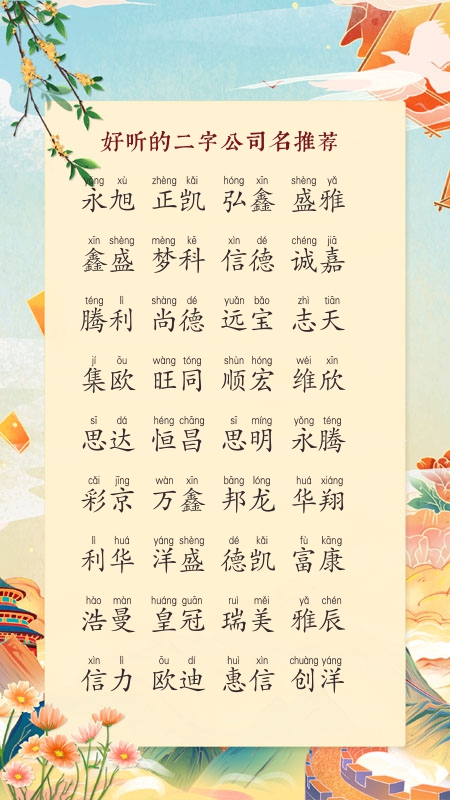 好听的二字公司名推荐
yǒng xù zhèng kǎi hóng xīn shèng yǎ
永旭 正凯 弘鑫 盛雅
xīn shèng mèng kē xìn dé chéng jiā
鑫盛 梦科 信德 诚嘉
téng lì shàng dé yuǎn bǎo zhì tiān
腾利 尚德 远宝 志天
jí ōu wàng tóng shùn hóng wéi xīn
集欧 旺同 顺宏 维欣
sī dá héng chāng sī míng yǒng téng
思达 恒昌 思明 永腾
cǎi jīng wàn xīn bāng lóng huá xiáng
彩京 万鑫 邦龙 华翔
lì huá yáng shèng dé kǎi fù kāng
利华 洋盛 德凯 富康
hào màn huáng guān ruì měi yǎ chén
浩曼 皇冠 瑞美 雅辰
xìn lì ōu dí huì xìn chuàng yáng
信力 欧迪 惠信 创洋